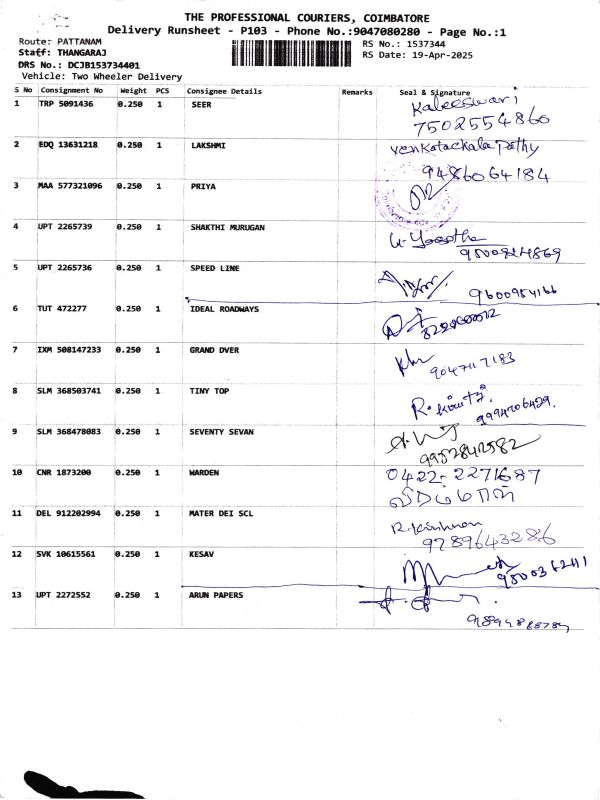 THE PROFESSIONAL COURIERS, COIMBATORE
Delivery Runsheet - P103 - Phone No.:9047080280 - Page No.:1
Route: PATTANAM
RS No.: 1537344
Staff: THANGARAJ
RS Date: 19-Apr-2025
DRS No.: DCJB153734401
Vehicle: Two Wheeler Delivery
S No Consignment No Weight PCS Consignee Details Remarks Seal & Signature
1 TRP 5091436 0.250 1 SEER Kaleeswari
7502554860
2 EDQ 13631218 0.250 1 LAKSHMI Venkatachala Pathy
9486064184
3 MAA 577321096 0.250 1 PRIYA
4 UPT 2265739 0.250 1 SHAKTHI MURUGAN
9500924869
5 UPT 2265736 0.250 1 SPEED LINE
9600954166
6 TUT 472277 0.250 1 IDEAL ROADWAYS
7 IXM 508147233 0.250 1 GRAND DVER
9047117183
8 SLM 368503741 0.250 1 TINY TOP
9994706429.
9 SLM 368478083 0.250 1 SEVENTY SEVAN
9952842582
10 CNR 1873200 0.250 1 WARDEN 0422-2271687
11 DEL 912202994 0.250 1 MATER DEI SCL R. Krishnan
9789643286
12 SVK 10615561 0.250 1 KESAV
13 UPT 2272552 0.250 1 ARUN PAPERS